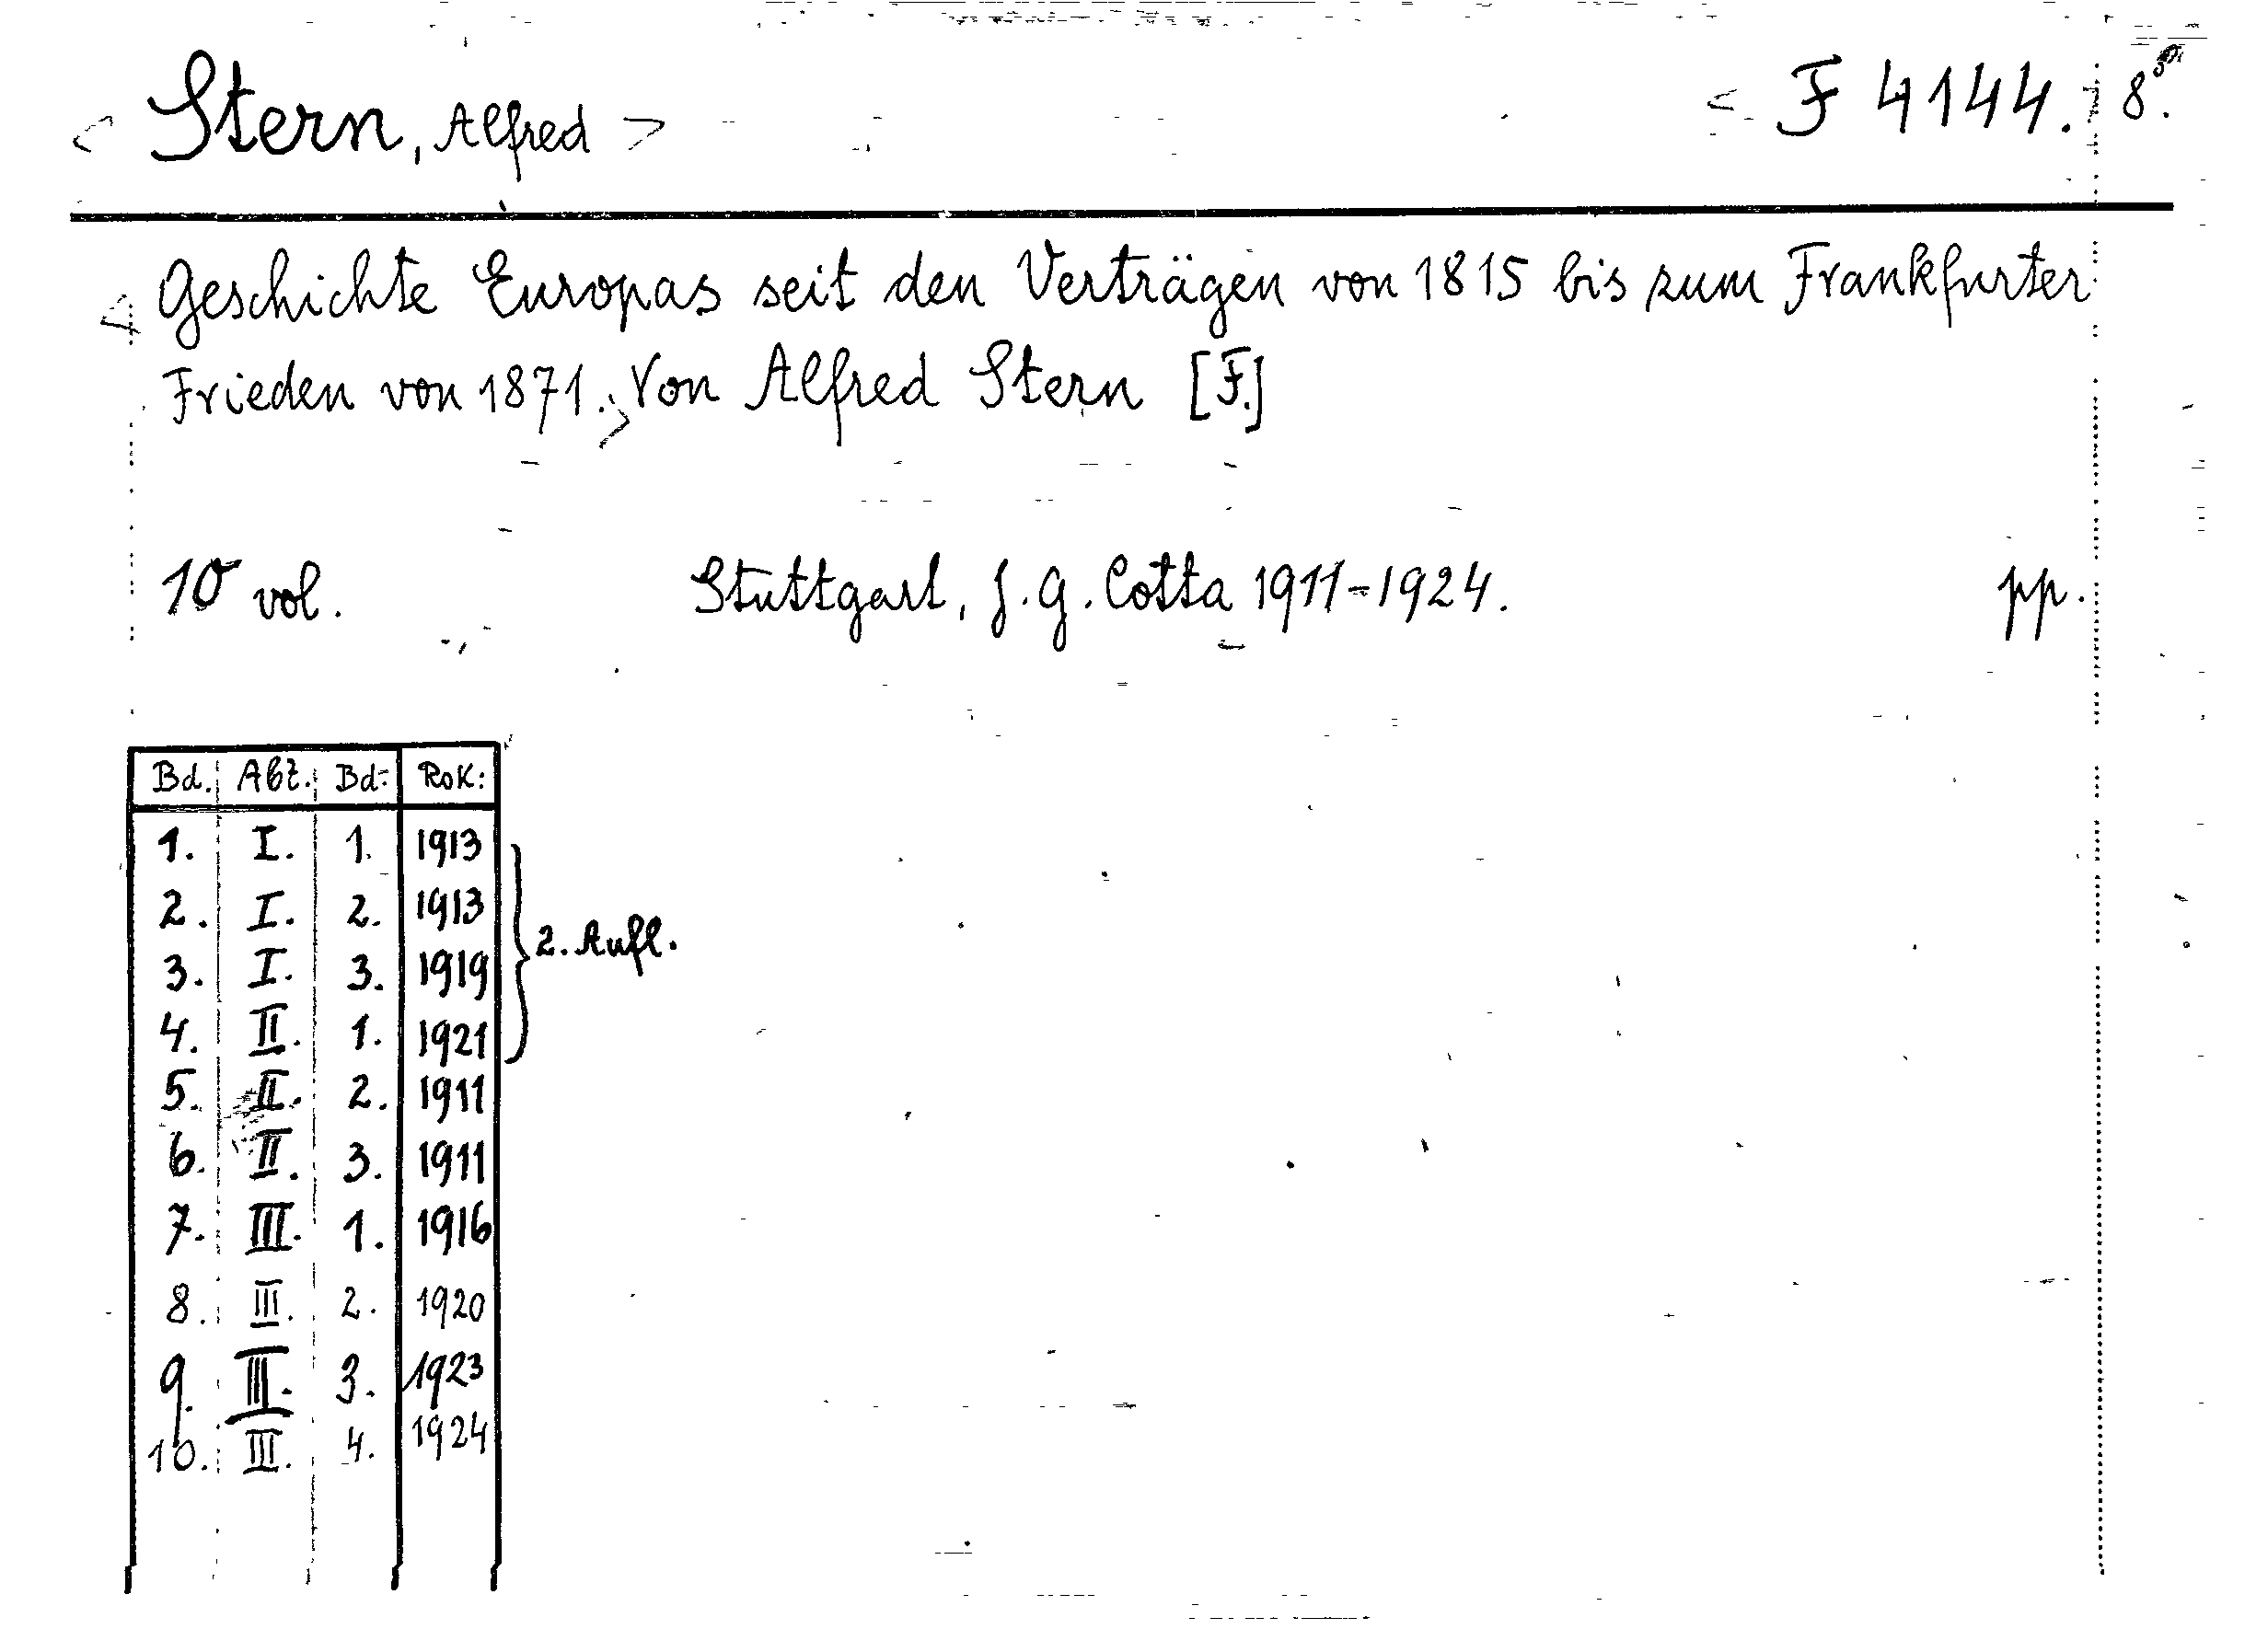 < Stern, Alfred > < F 4144. 8.
Geschichte Europas seit den Verträgen von 1815 bis zum Frankfurter
Frieden von 1871. > Von Alfred Stern [F.]
10 vol. Stuttgart, J. G. Cotta 1911-1924. pp.
Bd. Abt. Bd. Rok:
1. I. 1. 1913
2. I. 2. 1913
2. Aufl.
3. I. 3. 1919
4. II. 1. 1921
5. II. 2. 1911
6. II. 3. 1911
7. III. 1. 1916
8. III. 2. 1920
9. III. 3. 1923
10. III. 4. 1924